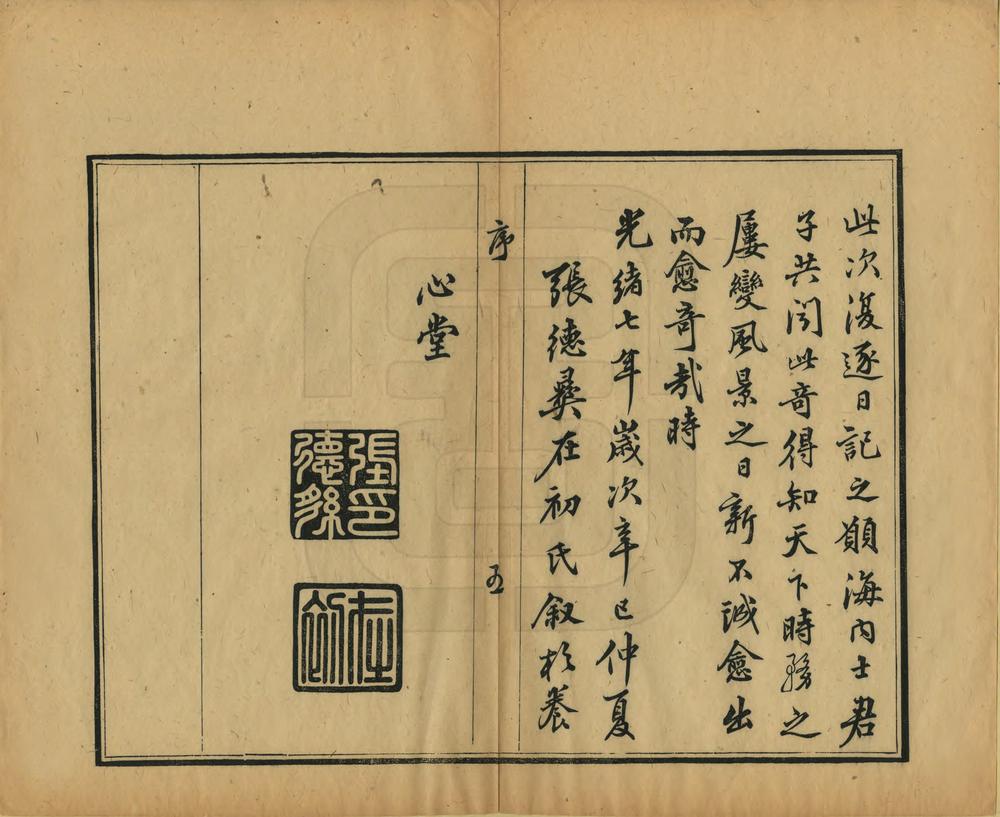 此次復逐日記之願海內士君
子共閱此奇得知天下時務之
屢變風景之日新不誠愈出
而愈奇哉時
光緒七年歲次辛巳仲夏
張德彝在初氏叙於養
序
五
心堂
張印
德彝
在
初